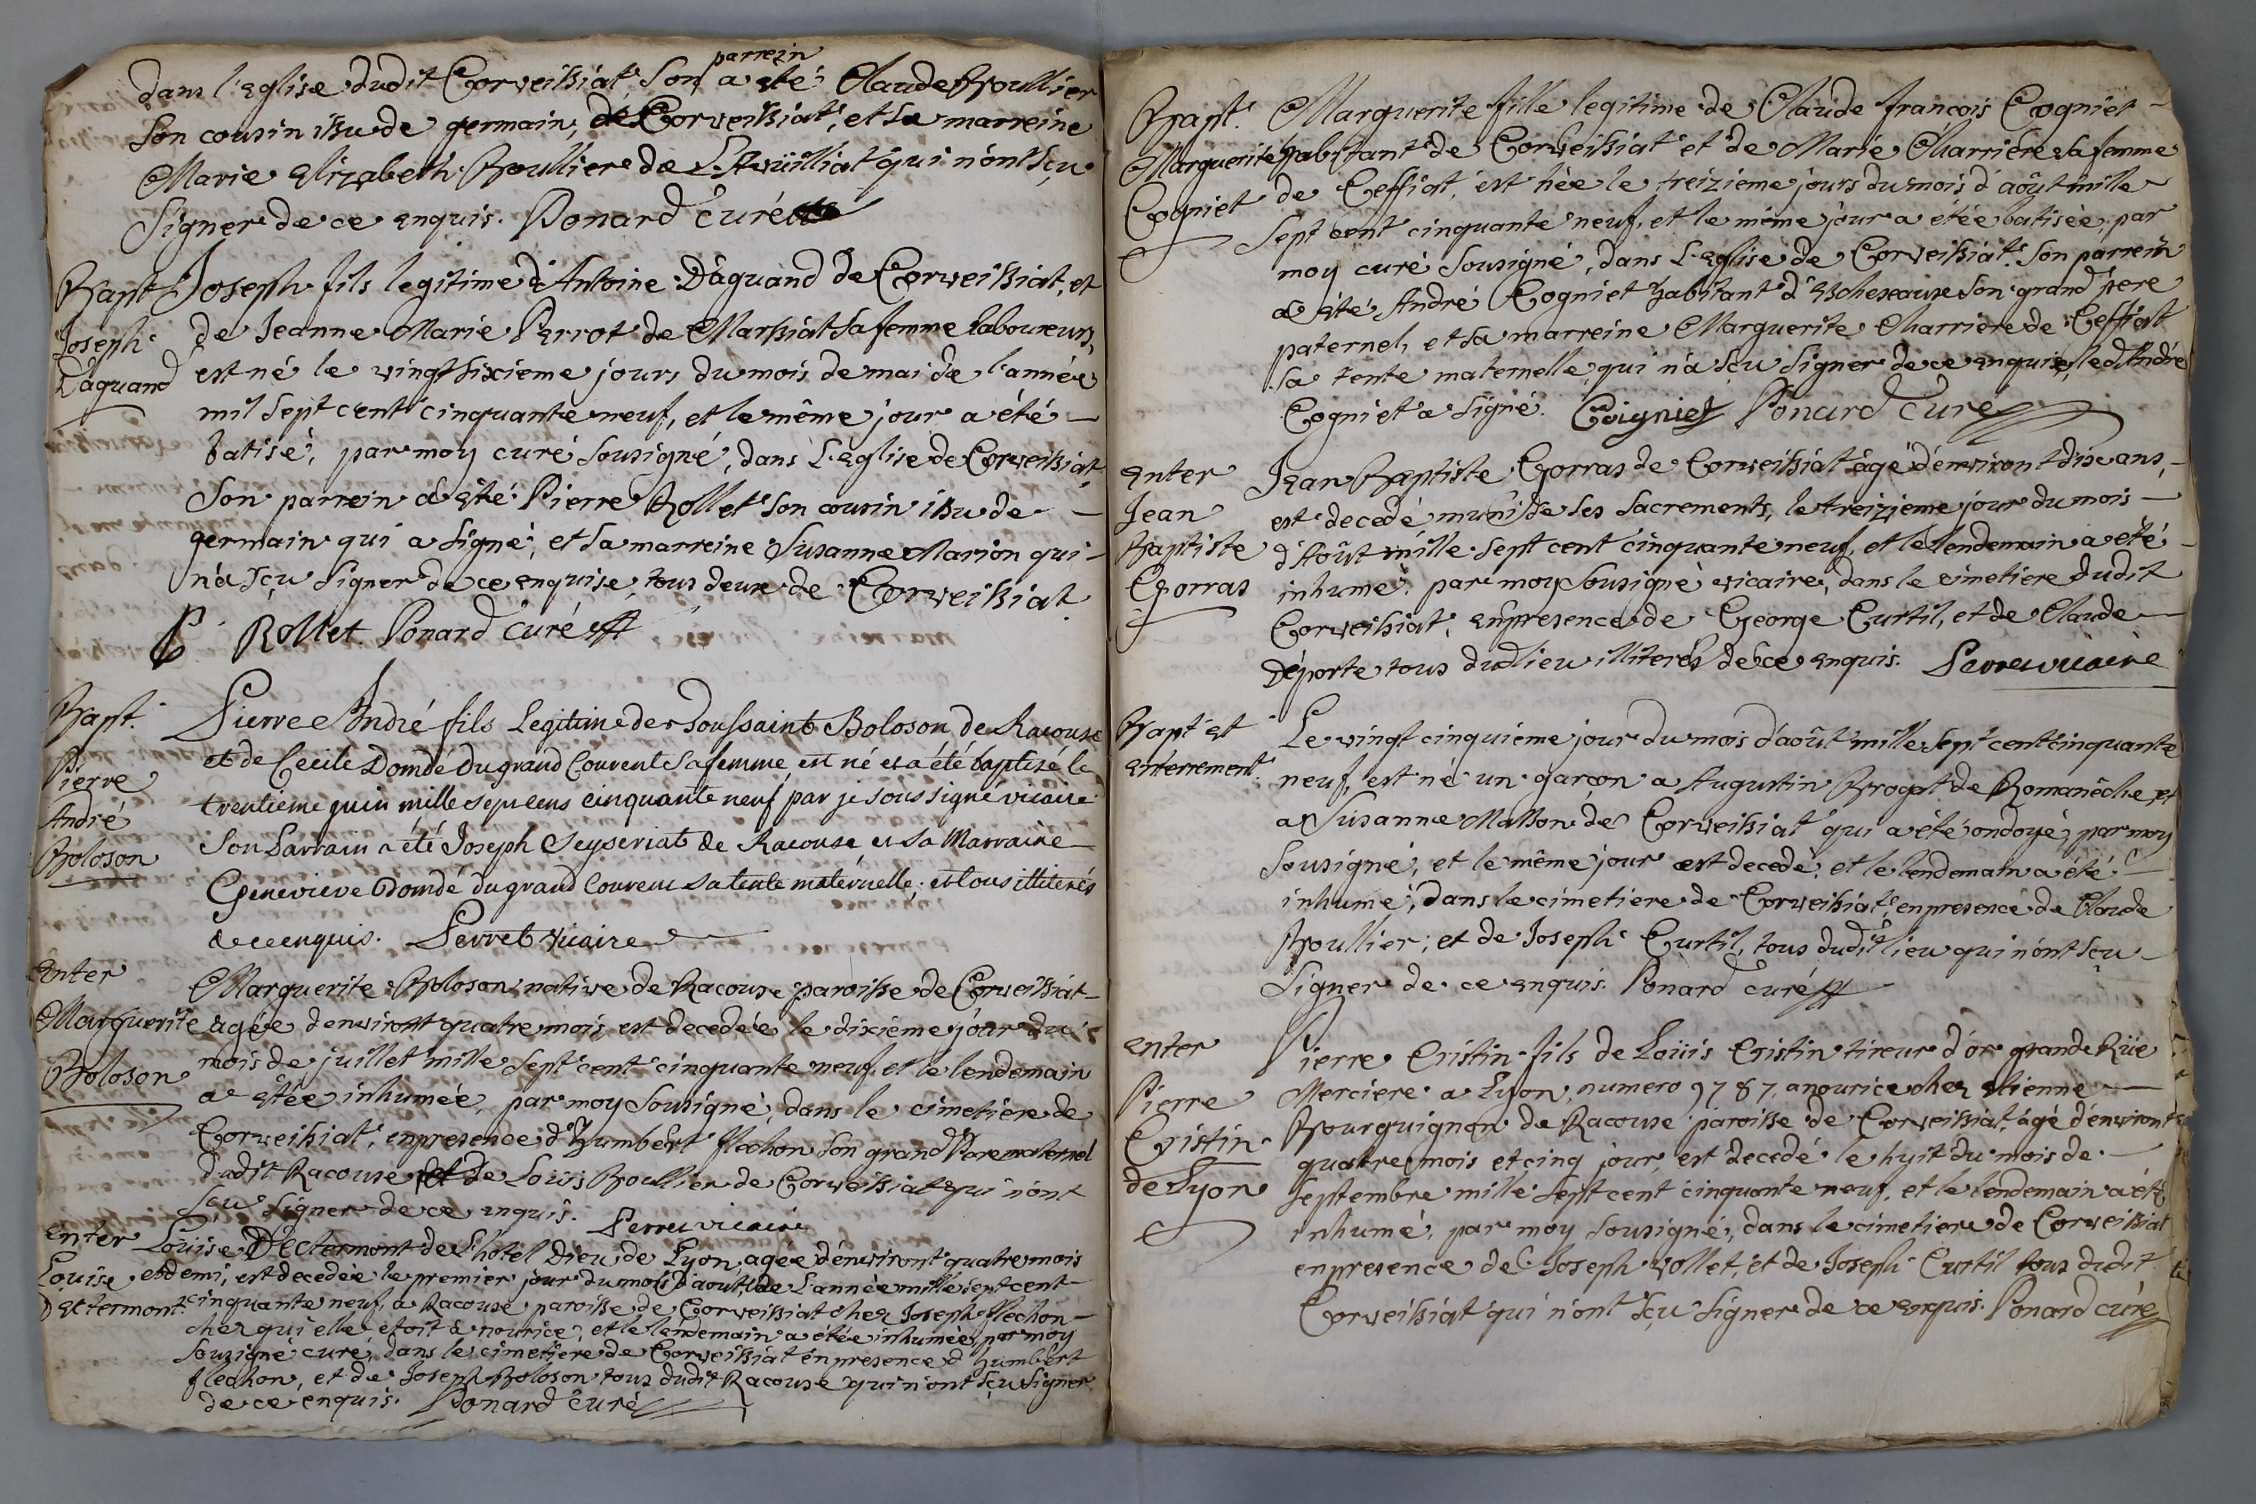 dans l'Eglise dudit Corveissiat, Son parrein a eté Claude Boullier
Son cousin issu de germain, de Corveissiat, et sa marreine
Marie Elizabeth Boullier de qui n'ont sçu
Signer de ce enquis. Ponard Curé
Bapt Joseph fils legitime d'Antoine Daguand de Corveissiat, et
Joseph de Jeanne Marie Perrot de Marssiat sa femme laboureurs,
Daguand est né le vingt sixieme jours du mois de mai de l'année
mil sept cent cinquante neuf, et le même jour a été
batisé, par moy curé Sousigné, dans L'Eglise de Corveissiat,
Son parrein a eté Pierre Rollet son cousin issu de
germain qui a signé, et sa marreine Susanne Marion qui
n'a sçu signer de ce enquise, tous deux de Corveissiat
P Rollet Ponard Curé
Bapt. Pierre André fils Legitime de Toussaint Boloson de Racouse
Pierre et de Cecile Domdé du grand Couvent sa femme est né et a été baptisé le
André trentieme juin mille sept cens cinquante neuf par je sous signé vicaire
Boloson Son Parrain a été Joseph Seyseriat de Racouse et sa Marraine
Genevieve Domdé du grand Couvent sa tente maternelle; et tous illiterés
de ce enquis. Perret vicaire
Enter Marguerite Boloson native de Racouse paroisse de Corveissiat
Marguerite agée d'environt quatre mois, est decedée le dixieme jour du
Boloson mois de juillet mille Sept cent cinquante neuf, et le lendemain
a etée inhumée, par moy Sousigné, dans le cimetiere de
Corveissiat, en presence d'humbert flechon son grand Pere maternel
dudit Racouse et de Loüis Boullier de Corveissiat qui n'ont
sçu signer de ce enquis. Perret vicaire
Enter Loüise D'Ectermont de L'hotel Dieu de Lyon, agée d'environt quatre mois
Loüise et demi, est decedée le premier jour du mois d'aout, de L'année mille sept cent
D'Ectermont cinquante neuf, a Racouse paroisse de Corveissiat chez Joseph flechon
chez qui elle etoit a nourice, et le lendemain a étée inhumée, par moy
Sousigné curé, dans le cimetiere de Corveissiat en presence d'humbert
flechon, et de Joseph Boloson tous dudit Racouse qui n'ont sçu signer
de ce enquis. Ponard Curé
Bapt. Marguerite fille legitime de Claude francois Cogniet
Marguerite habitant de Corveissiat et de Marie Charriere sa femme
Cogniet de Ceffiat, est née le treizieme jours du mois d'août mille
Sept cent cinquante neuf, et le même jour a étée batisée, par
moy curé Sousigné, dans L'Eglise de Corveissiat. Son parrein
a eté André Cogniet habitant d'Escheseaux son grand pere
paternel, et sa marreine Marguerite Charriere de Ceffiat
sa tente maternelle, qui n'a sçu signer de ce enquise, led André
Cogniet a signé. Coigniet Ponard Curé
Enter Jean Baptiste Gorras de Corveissiat agé d'environt dix ans,
Jean est decedé muni de ses Sacrements, le treizieme jour du mois
Baptiste d'Août mille sept cent cinquante neuf, et le lendemain a eté
Gorras inhumé, par moy Sousigné vicaire, dans le cimetiere dudit
Corveissiat, en presence de George Curtil, et de Claude
Déporte tous dud lieu illiterés de ce enquis. Perret vicaire
Bapt et Le vingt cinquieme jour du mois d'août mille sept cent cinquante
Enterrement neuf, est né un garçon a Augustin Brogat de Romanêche et
a Susanne Masson de Corveissiat qui a été ondoyé, par moy
Sousigné, et le même jour est decedé, et le lendemain a été
inhumé, dans le cimetiere de Corveissiat, en presence de Claude
Boullier, et de Joseph Curtil, tous dudit lieu qui n'ont sçu
Signer de ce enquis. Ponard curé
Enter Pierre Cristin fils de Loüis Cristin tireur d'or grande Rüe
Pierre Merciere a Lyon, numero 9787, a nourice chez Etienne
Cristin Bourguignon de Racouse paroisse de Corveissiat, agé d'environt
de Lyon quatre mois et cinq jour, est decedé le huit du mois de
Septembre mille Sept cent cinquante neuf, et le lendemain a été
inhumé, par moy sousigné, dans le cimetiere de Corveissiat
en presence de Joseph vollet, et de Joseph Curtil tous dudit
Corveissiat qui n'ont sçu signer de ce enquis. Ponard curé